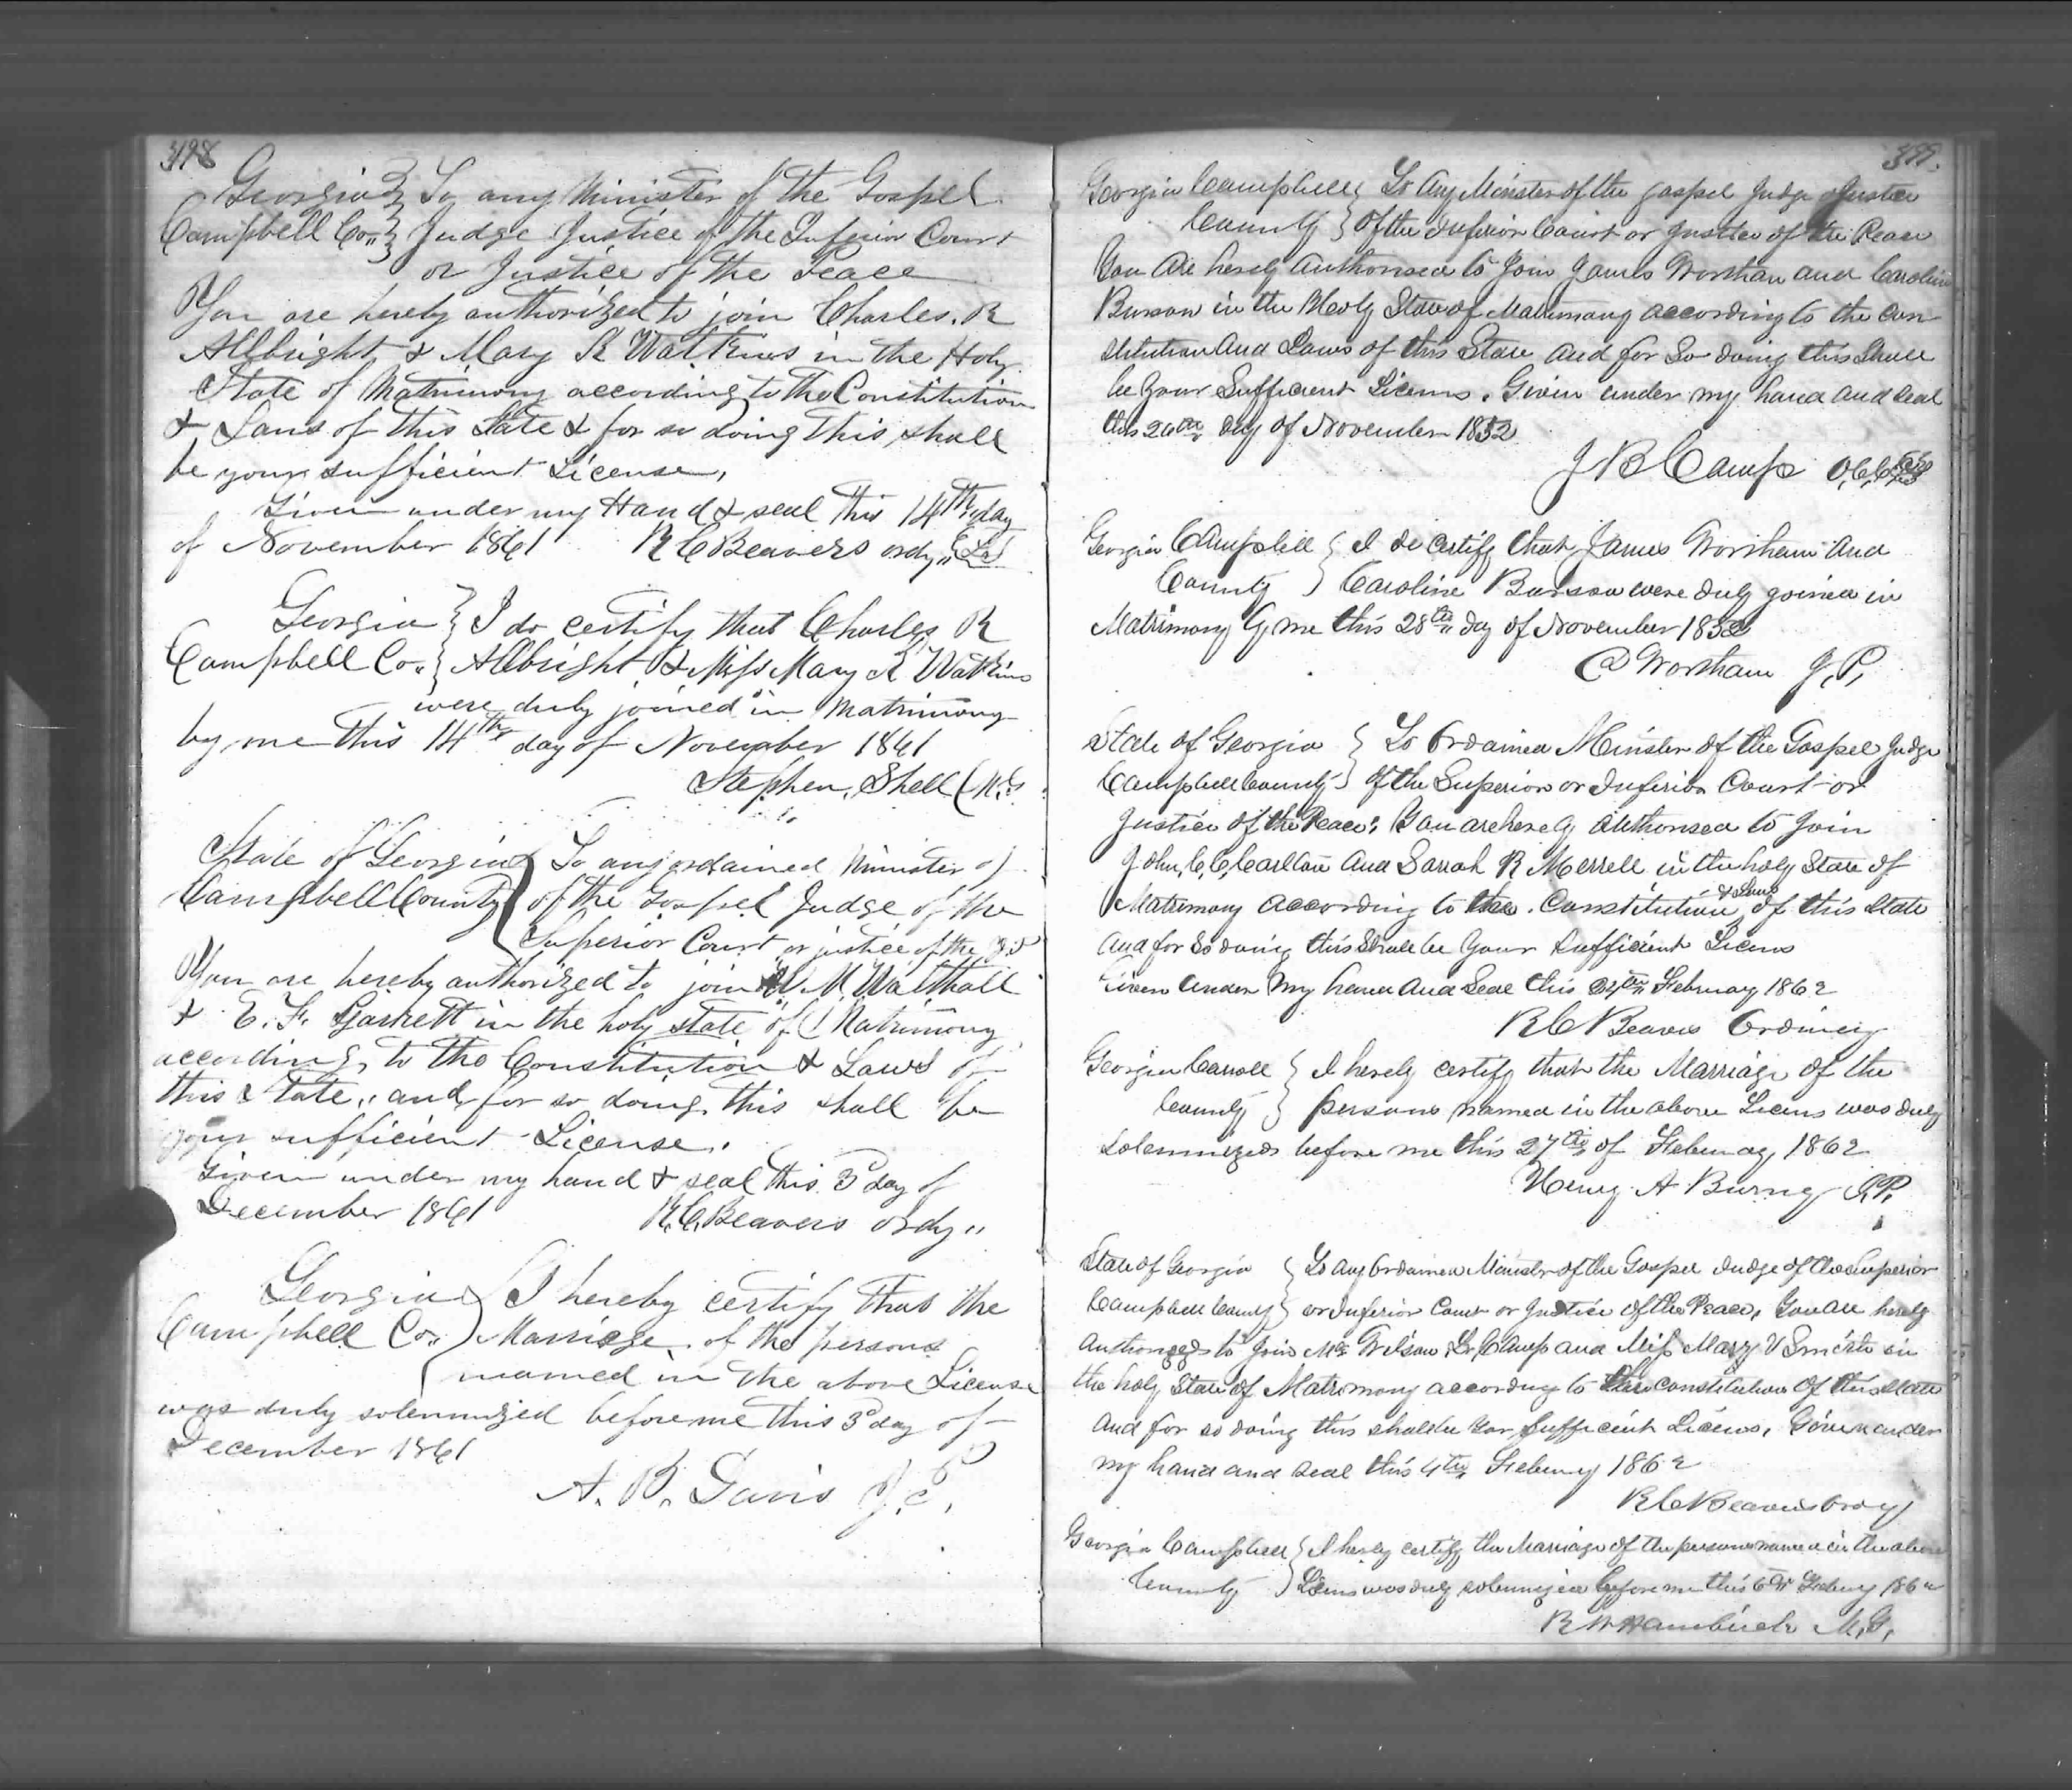 398
Georgia } To any Minister of the Gospel
Campbell Co,, } Judge Justice of the Inferior Court
or Justice of the Peace
You are hereby authorized to join Charles. R
Allbright & Mary R Watkins in the Holy
State of Matrimony according to the Constitution
& Laws of this State & for so doing this shall
be your sufficient License,
Given under my Hand & seal this 14th day
of November 1861 R C Beavers ordy,, {LS}
Georgia } I do certify that Charles R
Campbell Co,, } Allbright & Miss Mary R Watkins
were duly joined in Matrimony
by me this 14th day of November 1861
Stephen, Shell (M.G
State of Georgia } To any ordained Minister of
Campbell County } of the Gospel Judge of the
Superior Court or justice of the
You are hereby authorized to join M. Walthall
& E. F. Garrett in the holy state of Matrimony
according to the Constitution & Laws of
this State,, and for so doing this shall be
your sufficient License.
Given under my hand & seal this 3d day of
December 1861 R. C. Beavers ordy,,
Georgia } I hereby certify that the
Campbell Co,, } Marriage of the persons
named in the above License
was duly solemnized before me this 3d day of
December 1861
A. B. Davis J. P,
399.
Georgia Campbell } To Any Minister of the gospel Judge Justice
County } of the Inferior Court or Justice of the Peace
You Are hereby Authorised to Join James Worsham and Caroline
Burson in the Holy State of Matrimony according to the Con
stitution And Laws of this State and for So doing this Shall
be Your Sufficient Licens. Given under my hand and Seal
this day of November 1852
J B Camp C,C,O,
Georgia Campbell } I do Certify that James Worsham And
County } Caroline Burson were duly joined in
Matrimony by me this 28th day of November 1852
Worsham J, P,
State of Georgia } To Ordained Minister of the Gospel Judge
Campbell County } of the Superior or Inferior Court or
Justice of the Peace, You are hereby Authorised to Join
John, C, C, Carlton And Sarrah R Merrell in the holy State of
Matrimony According to the Constitution & Laws of this State
And for So doing this Shall be Your Sufficient Licens
Given Under My hand And Seal this 24th February 1862
R C Beavers Ordinery
Georgia Carroll } I hereby certify that the Marriage of the
County } persons named in the above Licens was duly
Solemnized before me this 27th of Februay 1862
Henry A Burns J.P.
State of Georgia } To Any Ordained Minister of the Gospel Judge of the Superior
Campbell County } or Inferior Court or Justice of the Peace, You are hereby
Authorized to Join Mr Wilson L, Camp and Miss Mary V Smith in
the holy State of Matrimony according to the constitution of this State
And for so doing this shall be Your Sufficient Licens, Given under
my hand and seal this 4th Februry 1862
R C Beavers Ordy
Georgia Campbell } I hereby certify the Marriage of the persons named in the above
County } Licens was duly solemnized before me this 6th Februry 1862
R W Hambrick M,G,